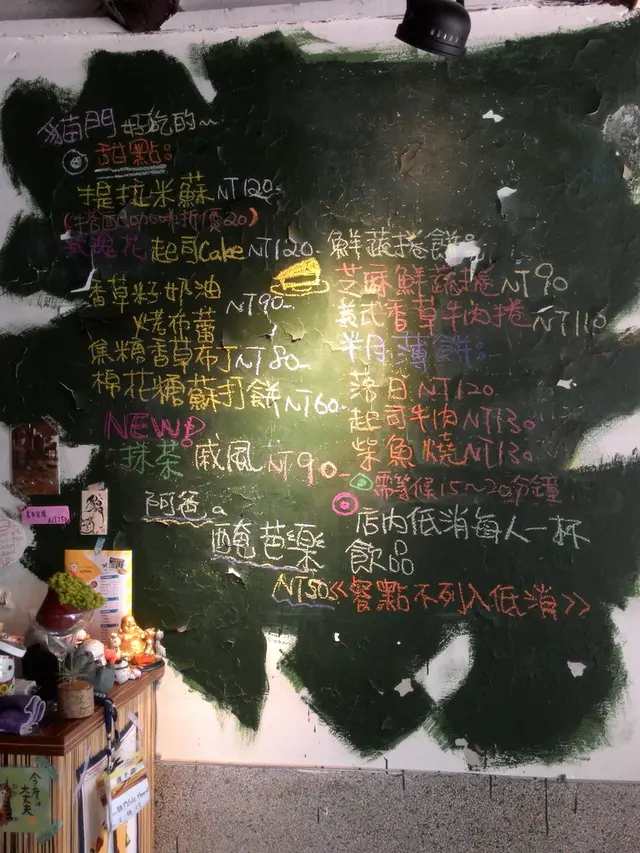 貓門 好吃的~
甜點:
提拉米蘇 NT120
玫瑰花起司Cake NT120
香草籽奶油
烤布蕾 NT90
焦糖香草布丁 NT80
棉花糖蘇打餅 NT60
NEW!
抹茶戚風 NT90
阿爸a
醃芭樂
NT50
鮮蔬捲餅:
芝麻鮮蔬捲 NT90
義式香草牛肉捲 NT110
半月薄餅:
落日 NT120
起司牛肉 NT130
柴魚燒 NT130
需等候15~20分鐘
店內低消每人一杯
飲品
<<餐點不列入低消>>